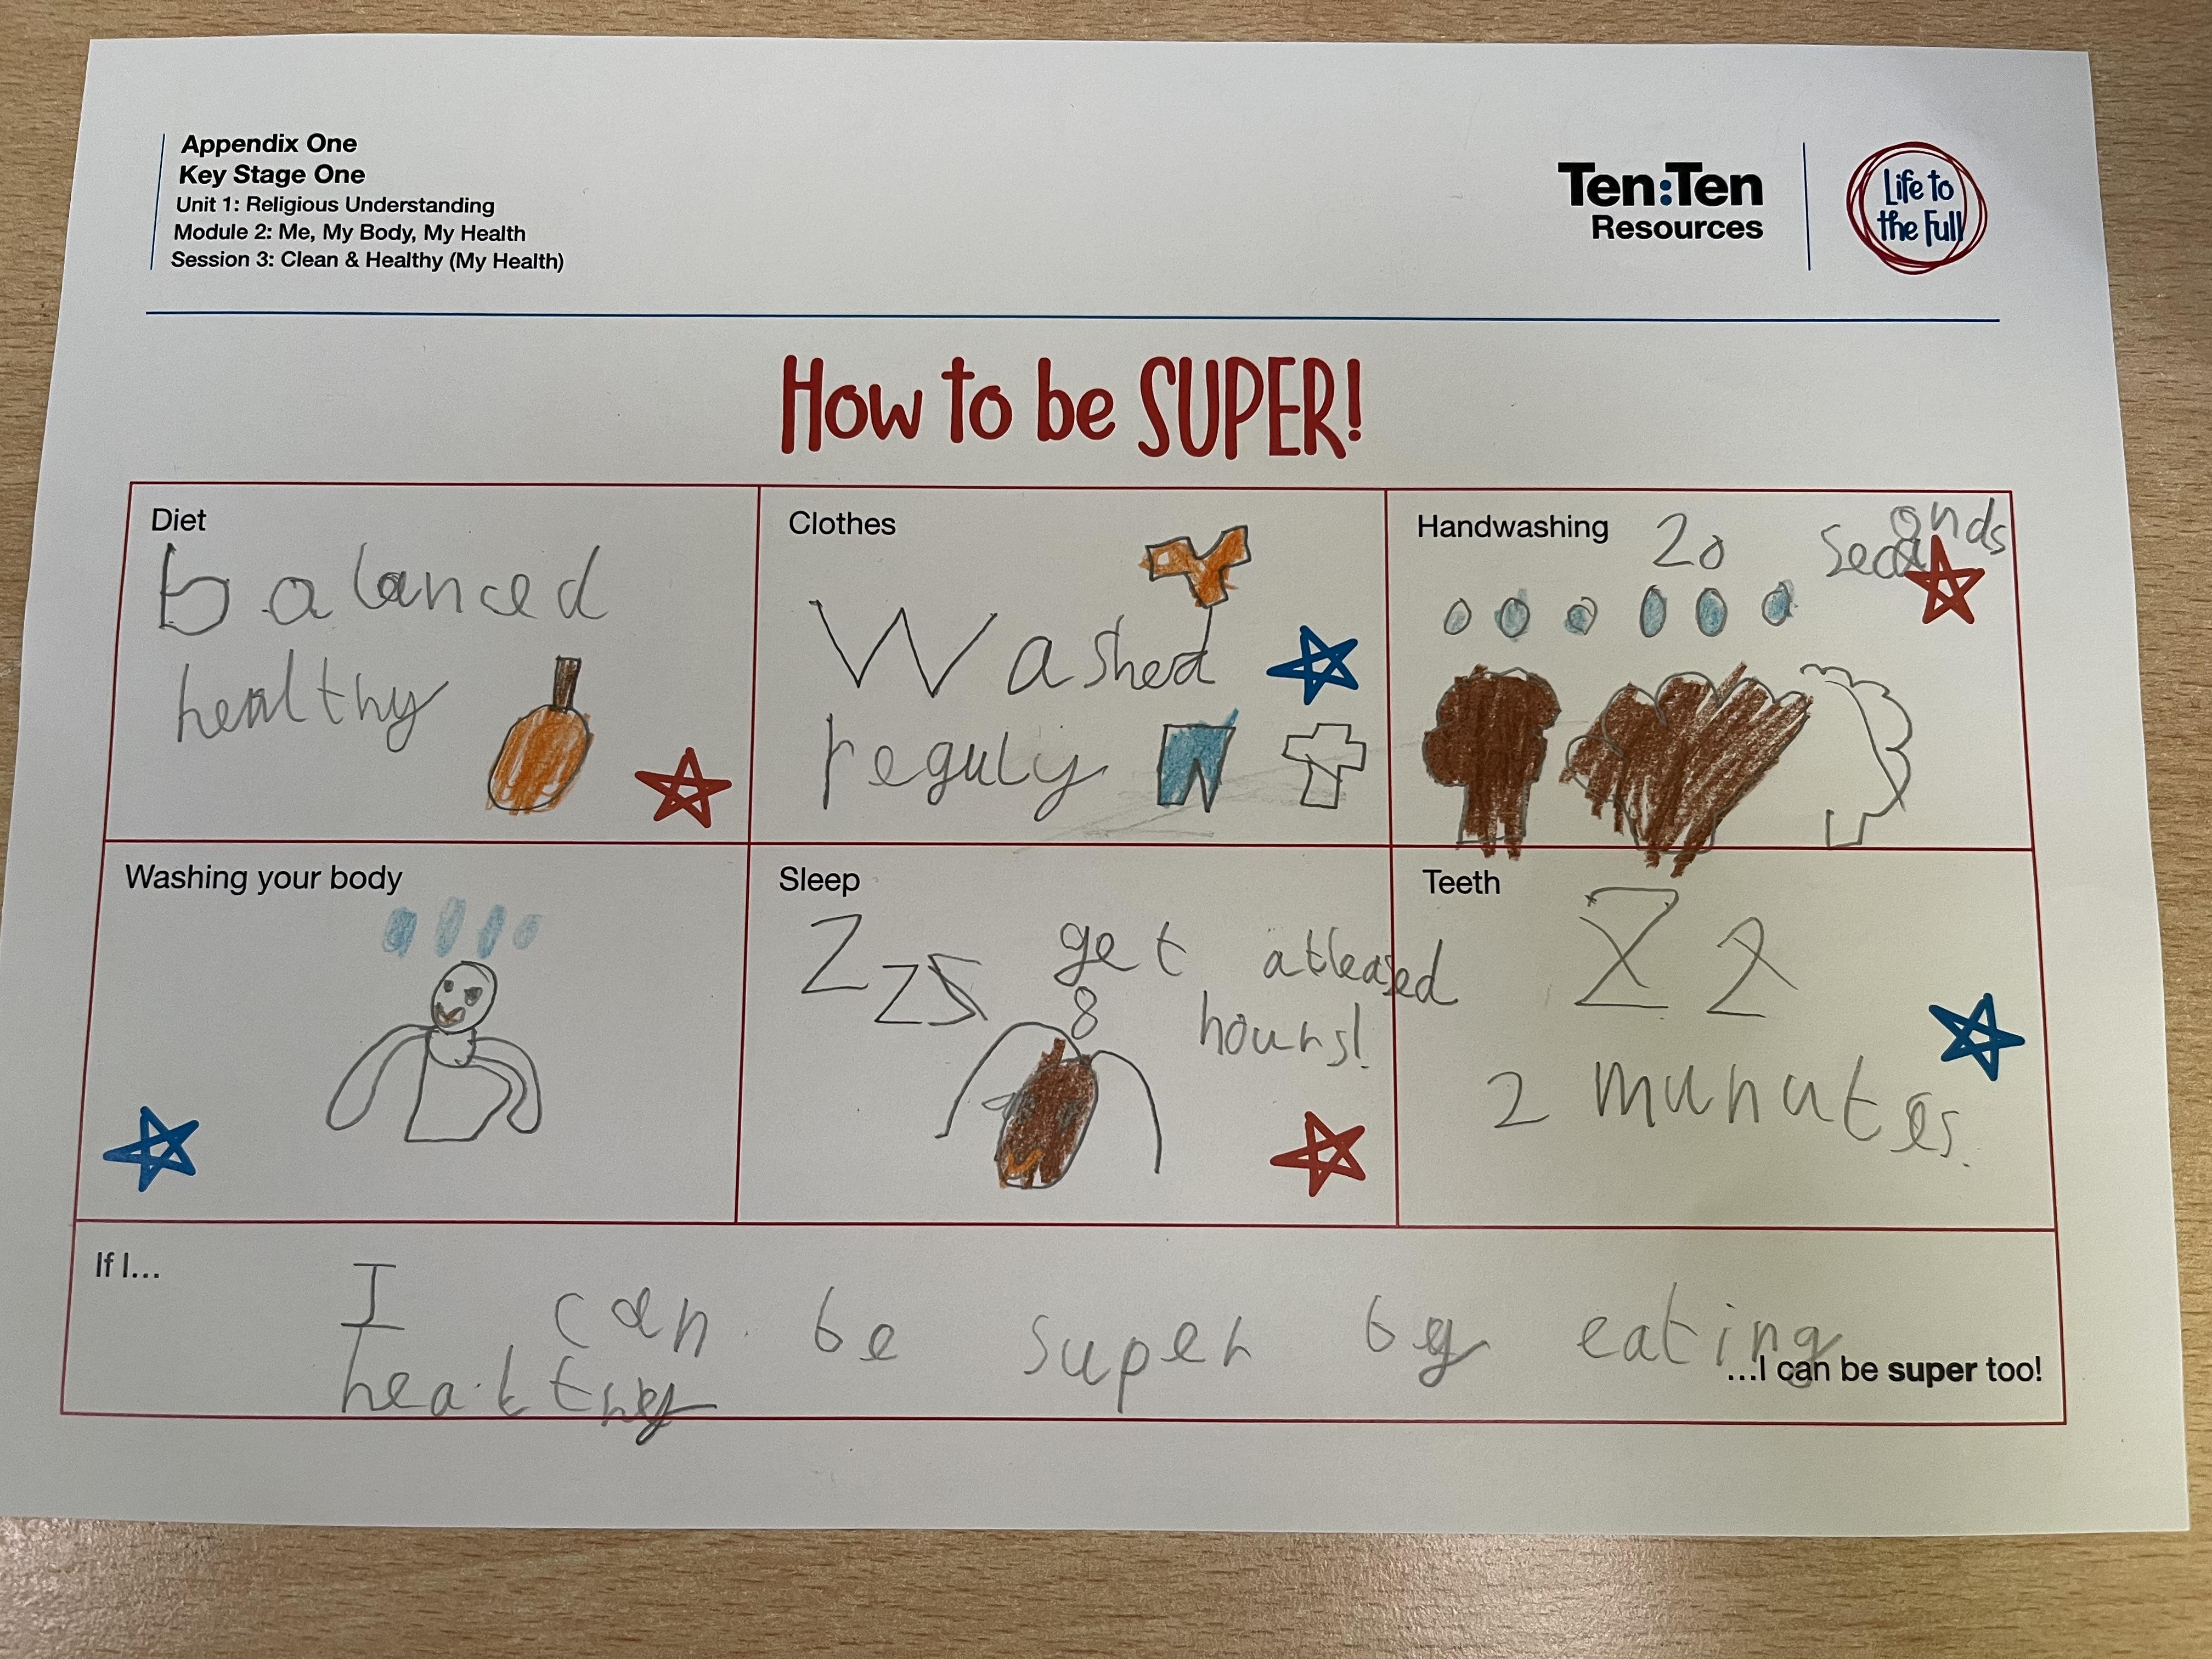 Appendix One
Key Stage One
Unit 1: Religious Understanding
Module 2: Me, My Body, My Health
Session 3: Clean & Healthy (My Health)
Ten:Ten
Resources
Life to
the Full
How to be SUPER!
Diet
balanced
healthy
Clothes
Washed
reguly
Handwashing
20 seconds
Washing your body
Sleep
Zzs get atleased
8 hours!
Teeth
2 munutes.
If I...
I can be super by eating
healthy
...I can be super too!